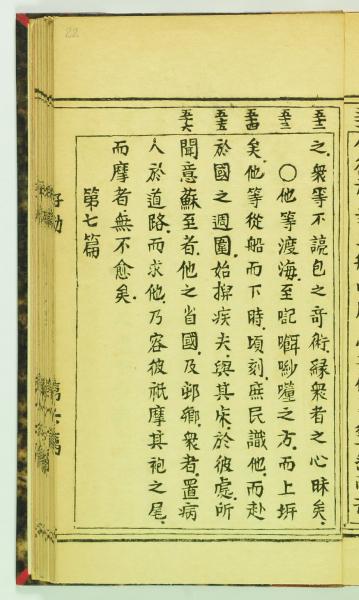 22
五二 之衆等不諒包之奇術緣衆者之心昧矣
五三 〇他等渡海至記㖿喲㘗之方而上垪
五四 矣他等從船而下時頃刻庶民識他而赴
五五 於國之週圍始揹疾夫與其床於彼處所
五六 聞意蘇至者他之省國及邨鄉衆者置病
人於道路而求他乃容彼祇摩其袍之尾
而摩者無不愈矣
第七篇
第六篇